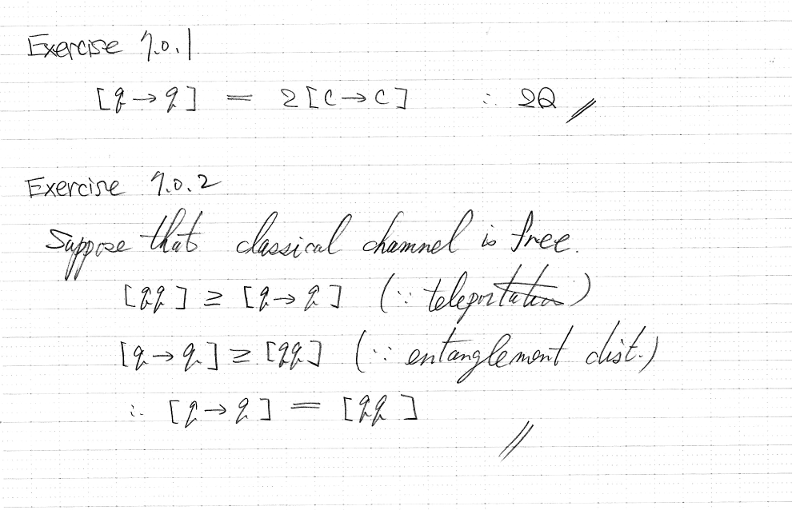 Exercise 7.0.1
[q→q] = 2[c→c] ∴ 2Q //
Exercise 7.0.2
Suppose that classical channel is free.
[qq] ≥ [q→q] (∵ teleportation)
[q→q] ≥ [qq] (∵ entanglement dist.)
∴ [q→q] = [qq]
//